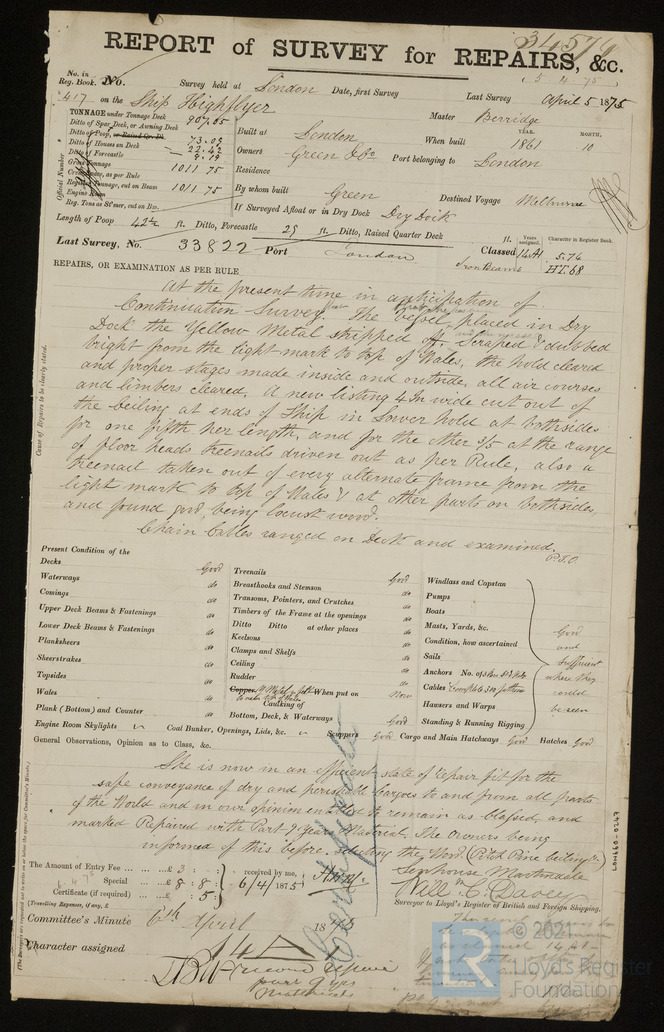 34576
REPORT of SURVEY for REPAIRS, &c.
5 4 75
No. in Reg. Book. No. Survey held at London Date, first Survey Last Survey April 5 1875
417 on the Ship Highflyer Master Berridge
TONNAGE under Tonnage Deck 907.05
Ditto of Spar Deck, or Awning Deck
Ditto of Poop, or Raised Qr. Dk. 73.09
Ditto of Houses on Deck 22.42
Ditto of Forecastle 9.19
Gross Tonnage 1011 75
Crew Space, as per Rule
Register Tonnage, cut on Beam 1011 75
Engine Room
Reg. Tons as St'mer, cut on Bm.
Official Number
Built at London When built YEAR. 1861 MONTH. 10
Owners Green & Co Port belonging to London
Residence
By whom built Green Destined Voyage Melbourne
If Surveyed Afloat or in Dry Dock Dry Dock
Length of Poop 42½ ft. Ditto, Forecastle 29 ft. Ditto, Raised Quarter Deck ft.
Years assigned. Character in Register Book.
Last Survey, No. 33822 Port London Classed 14A1 5.74
Iron Beams HT.68
REPAIRS, OR EXAMINATION AS PER RULE
Cause of Repairs to be clearly stated.
At the present time in anticipation of
Continuation Survey the Vessel placed in Dry
Dock the Yellow Metal stripped off. Scraped & dubbed
bright from the light mark to top of Wales, the hold cleared
and proper stages made inside and outside, all air courses
and limbers cleared. A new listing 4 In wide cut out of
the ceiling at ends of Ship in Lower hold at both sides
for one fifth her length, and for the other 3/5 at the range
of floor heads treenails driven out as per Rule, also a
treenail taken out of every alternate frame from the
light mark to top of Wales & at other parts on both sides,
and found good, being locust wood.
Chain Cables ranged on Deck and examined.
P.T.O.
Present Condition of the
Decks Good
Waterways do
Comings do
Upper Deck Beams & Fastenings do
Lower Deck Beams & Fastenings do
Planksheers do
Sheerstrakes do
Topsides do
Wales do
Plank (Bottom) and Counter do
Engine Room Skylights Coal Bunker, Openings, Lids, &c. Scuppers Good Cargo and Main Hatchways Good Hatches Good
Treenails Good
Breasthooks and Stemson do
Transoms, Pointers, and Crutches do
Timbers of the Frame at the openings do
Ditto Ditto at other places do
Keelsons do
Clamps and Shelfs do
Ceiling do
Rudder do
Copper, When put on Now
Caulking of
Bottom, Deck, & Waterways Good
Windlass and Capstan
Pumps
Boats
Masts, Yards, &c.
Condition, how ascertained
Sails
Anchors No. of
Cables
Hawsers and Warps
Standing & Running Rigging
Good
and
Sufficient
where they
could
be seen
General Observations, Opinion as to Class, &c.
She is now in an efficient state of repair fit for the
safe conveyance of dry and perishable Cargoes to and from all parts
of the World and in our opinion entitled to remain as Classed, and
marked Repaired with Part 9 Years Material. The Owners being
informed of this before. (Pitch Pine ceiling)
The Amount of Entry Fee £3 : : received by me,
Special £8 : 8 : 6/4/1875
Certificate (if required) £ : 5 :
(Travelling Expenses, if any, £
Senhouse Martindale
Will C. Davey
Surveyor to Lloyd's Register of British and Foreign Shipping.
Committee's Minute 6th April 1875
Character assigned 14A
second repair
part 9 yrs
materials
LON660-0247
© 2021
LR
Lloyd's Register
Foundation